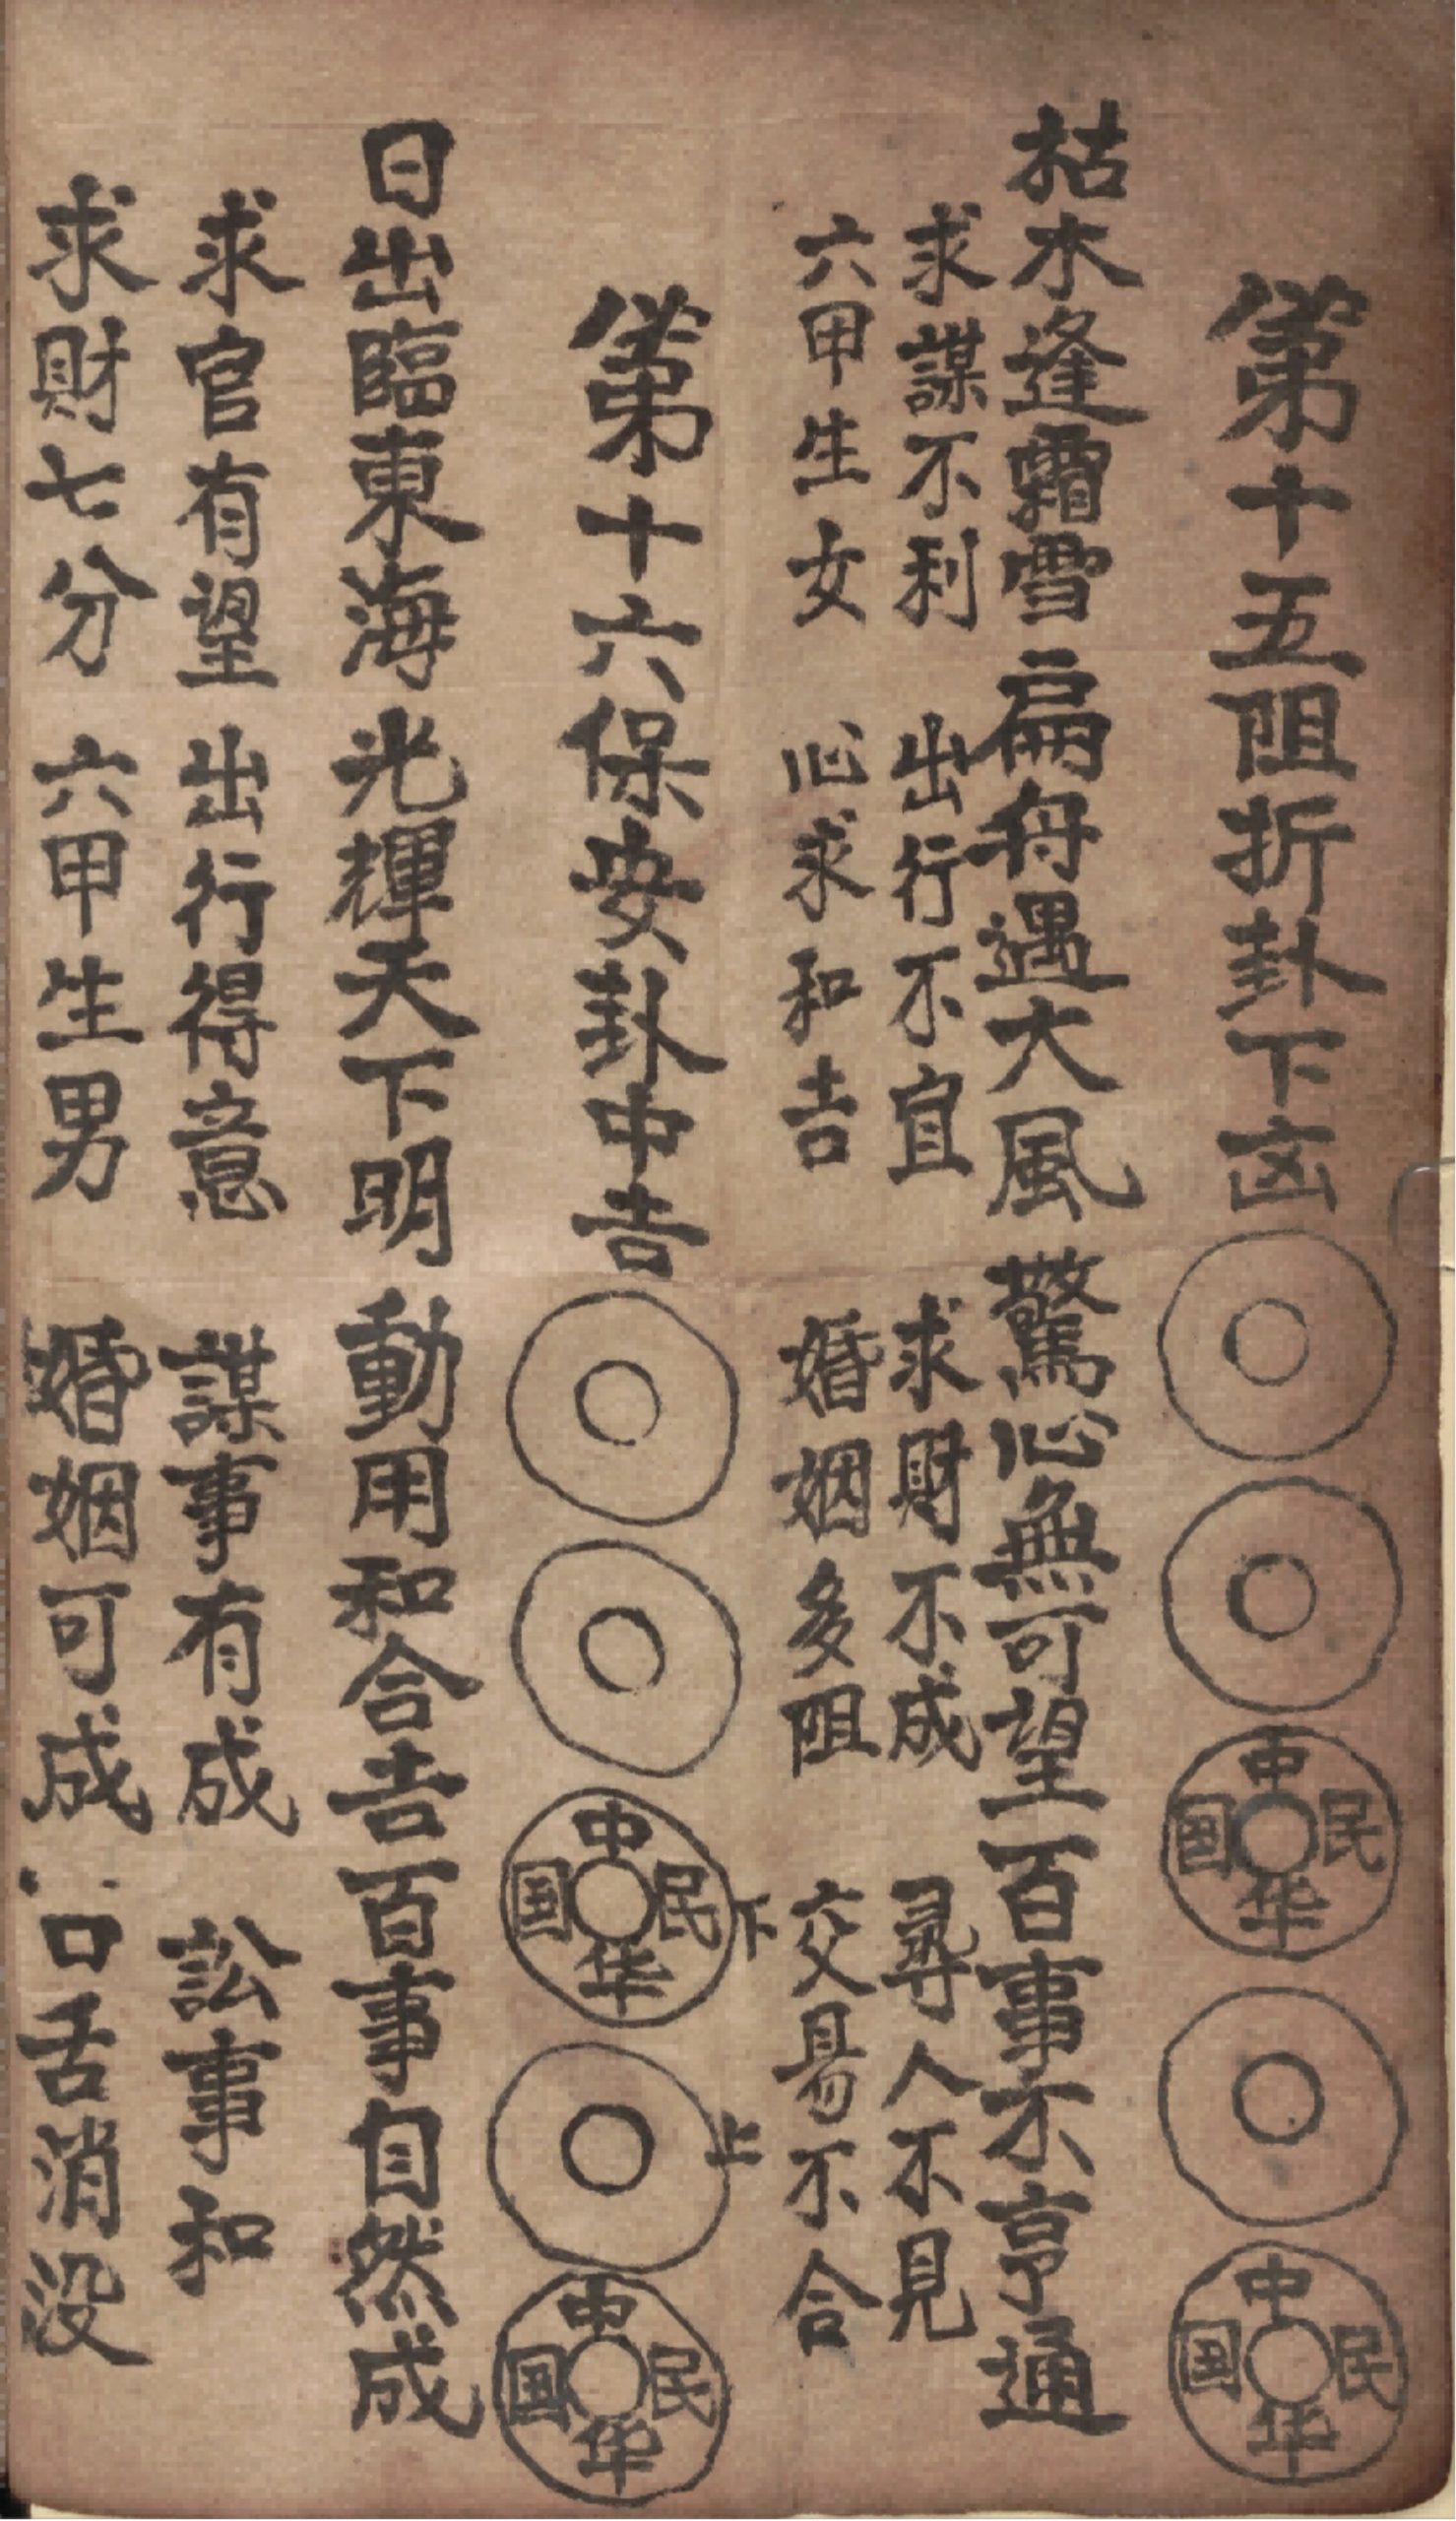 第十五阻折卦下凶
中民华国
中民华国
枯木逢霜雪 扁舟遇大風 驚心無可望 百事不亨通
求謀不利 出行不宜 求財不成 尋人不見
六甲生女 心求和吉 婚姻多阻 交易不合
下 上
第十六保安卦中吉
中民华国
中民华国
日出臨東海 光輝天下明 動用和合吉 百事自然成
求官有望 出行得意 謀事有成 訟事和
求財七分 六甲生男 婚姻可成 口舌消没